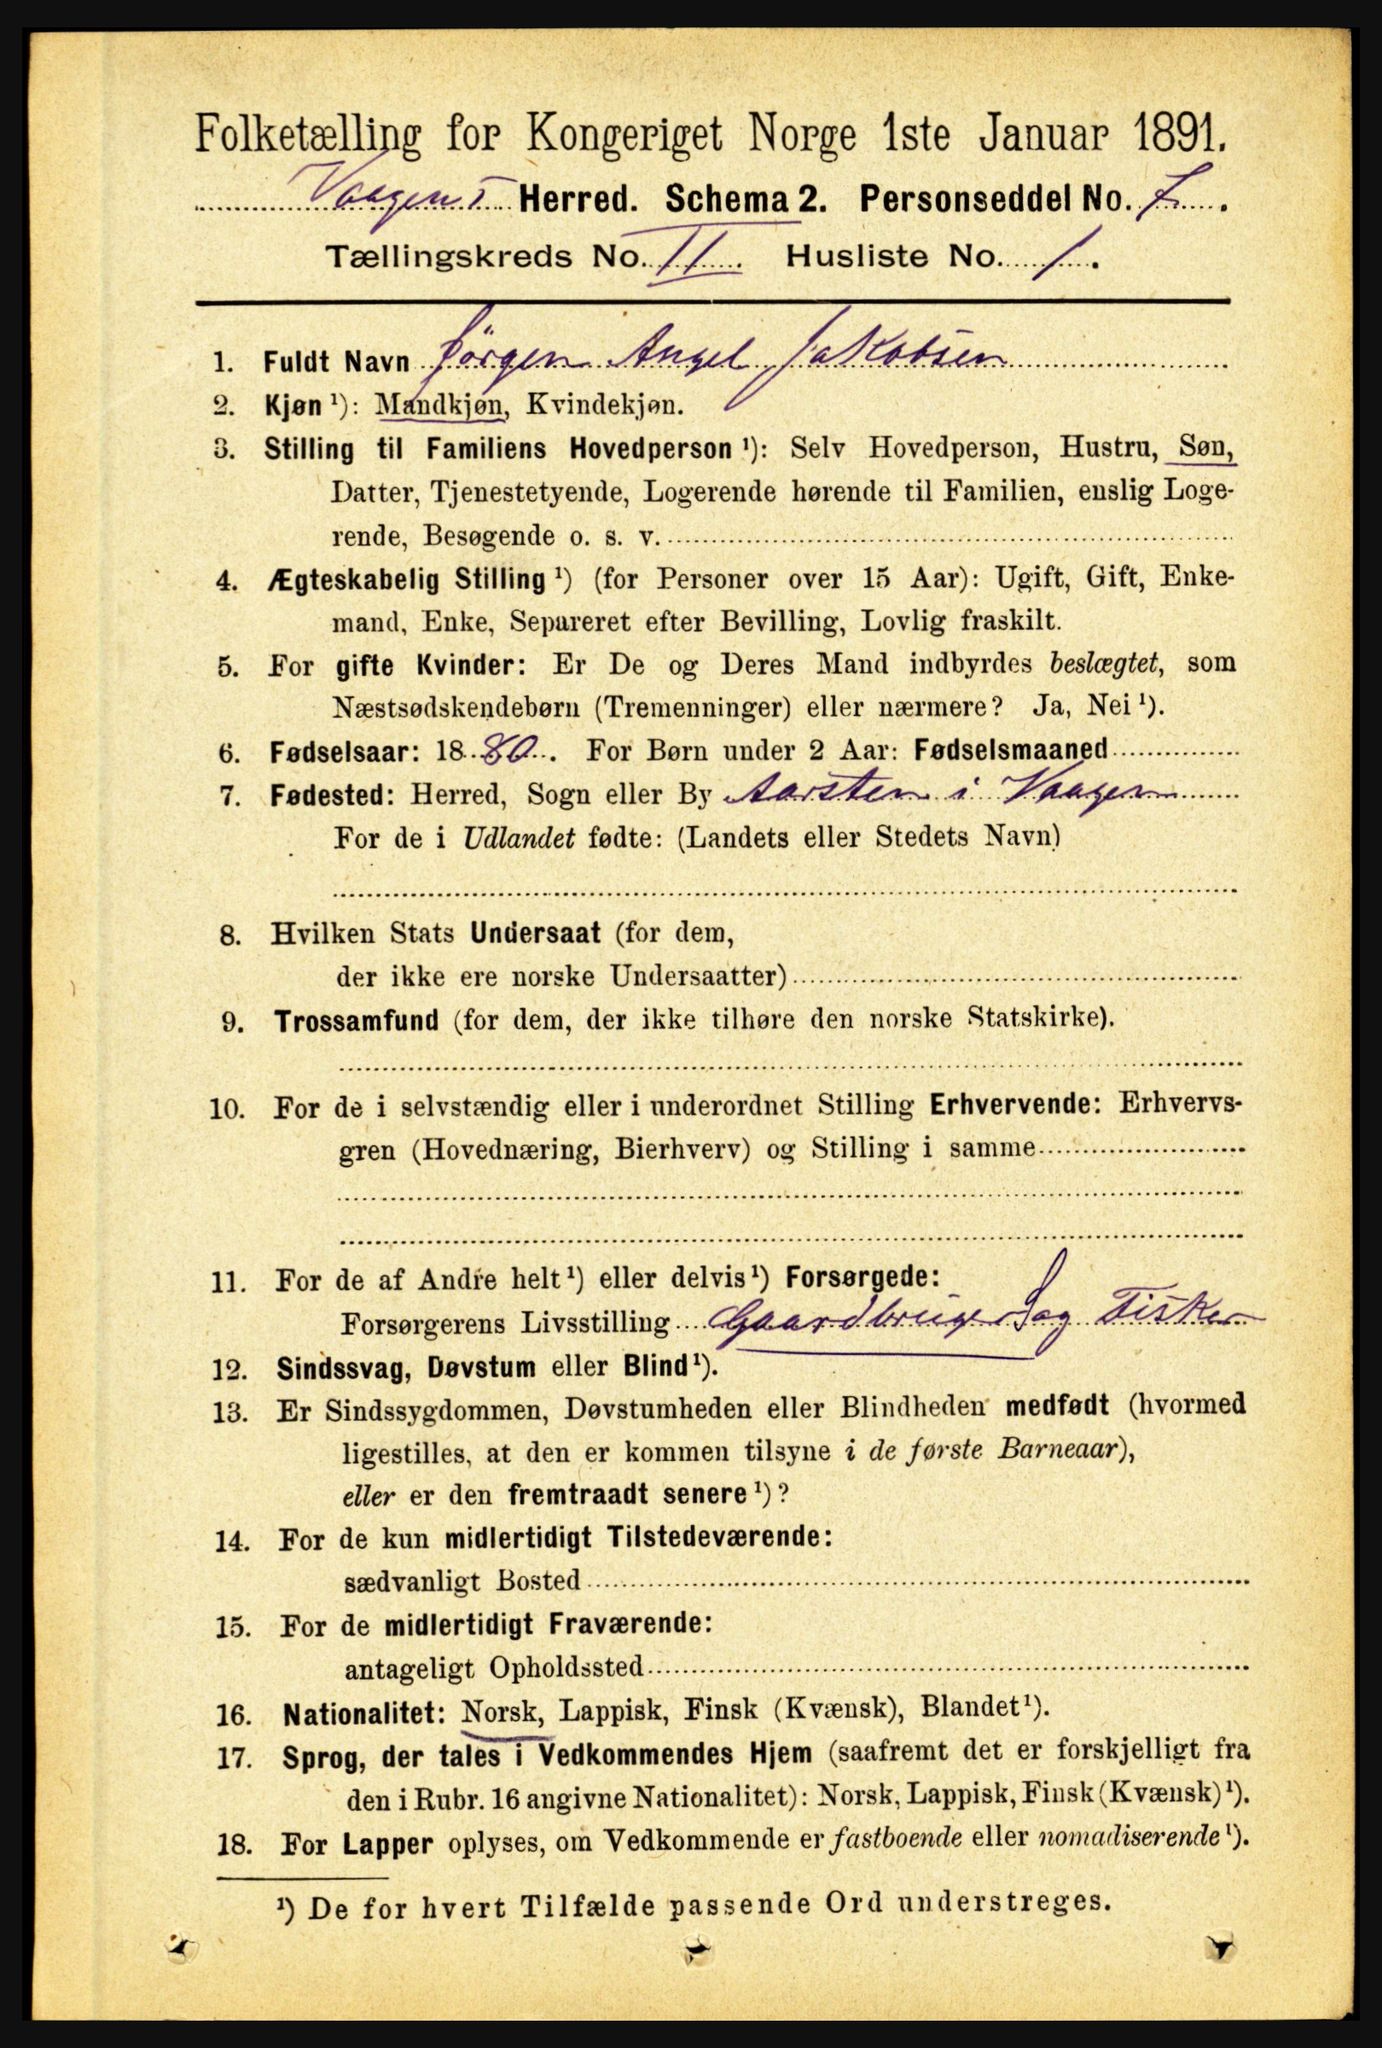 Folketælling for Kongeriget Norge 1ste Januar 1891.
Vaagens Herred. Schema 2. Personseddel No. 7.
Tællingskreds No. II. Husliste No. 1.
1. Fuldt Navn Jørgen Angel Jakobsen
2. Kjøn ¹): Mandkjøn, Kvindekjøn.
3. Stilling til Familiens Hovedperson ¹): Selv Hovedperson, Hustru, Søn,
Datter, Tjenestetyende, Logerende hørende til Familien, enslig Loge-
rende, Besøgende o. s. v.
4. Ægteskabelig Stilling ¹) (for Personer over 15 Aar): Ugift, Gift, Enke-
mand, Enke, Separeret efter Bevilling, Lovlig fraskilt.
5. For gifte Kvinder: Er De og Deres Mand indbyrdes beslægtet, som
Næstsødskendebørn (Tremenninger) eller nærmere? Ja, Nei ¹).
6. Fødselsaar: 1880. For Børn under 2 Aar: Fødselsmaaned
7. Fødested: Herred, Sogn eller By Aarsten i Vaagen
For de i Udlandet fødte: (Landets eller Stedets Navn)
8. Hvilken Stats Undersaat (for dem,
der ikke ere norske Undersaatter)
9. Trossamfund (for dem, der ikke tilhøre den norske Statskirke).
10. For de i selvstændig eller i underordnet Stilling Erhvervende: Erhvervs-
gren (Hovednæring, Bierhverv) og Stilling i samme
11. For de af Andre helt ¹) eller delvis ¹) Forsørgede:
Forsørgerens Livsstilling Gaardbruger og Fisker
12. Sindssvag, Døvstum eller Blind ¹).
13. Er Sindssygdommen, Døvstumheden eller Blindheden medfødt (hvormed
ligestilles, at den er kommen tilsyne i de første Barneaar),
eller er den fremtraadt senere ¹)?
14. For de kun midlertidigt Tilstedeværende:
sædvanligt Bosted
15. For de midlertidigt Fraværende:
antageligt Opholdssted
16. Nationalitet: Norsk, Lappisk, Finsk (Kvænsk), Blandet ¹).
17. Sprog, der tales i Vedkommendes Hjem (saafremt det er forskjelligt fra
den i Rubr. 16 angivne Nationalitet): Norsk, Lappisk, Finsk (Kvænsk) ¹).
18. For Lapper oplyses, om Vedkommende er fastboende eller nomadiserende ¹).
¹) De for hvert Tilfælde passende Ord understreges.